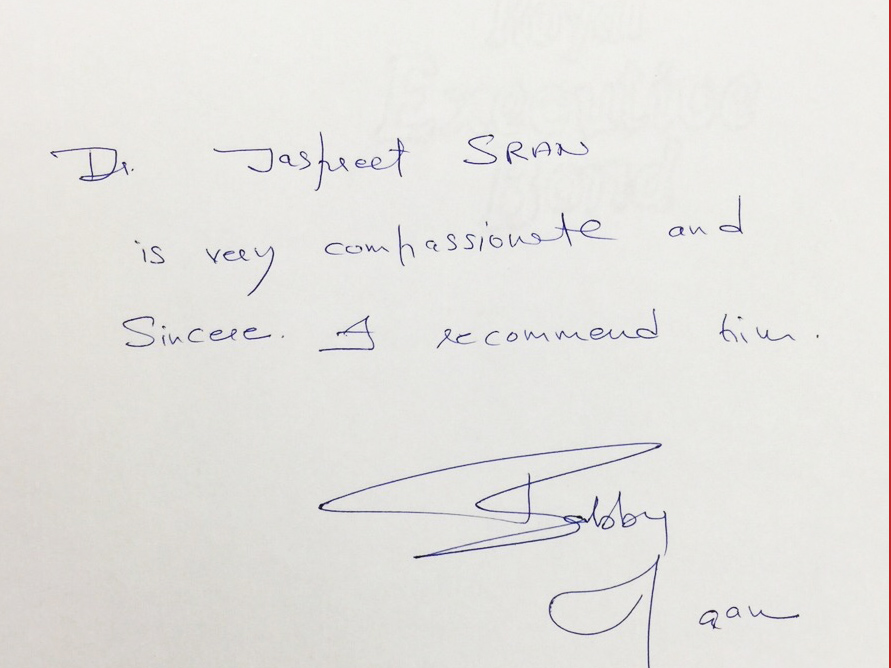 Dr. Jaspreet SRAN
is very compassionate and
Sincere. I recommend him.